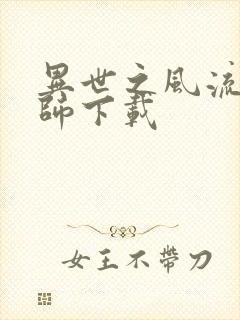 異世之風流
師下載
女王不帶刀